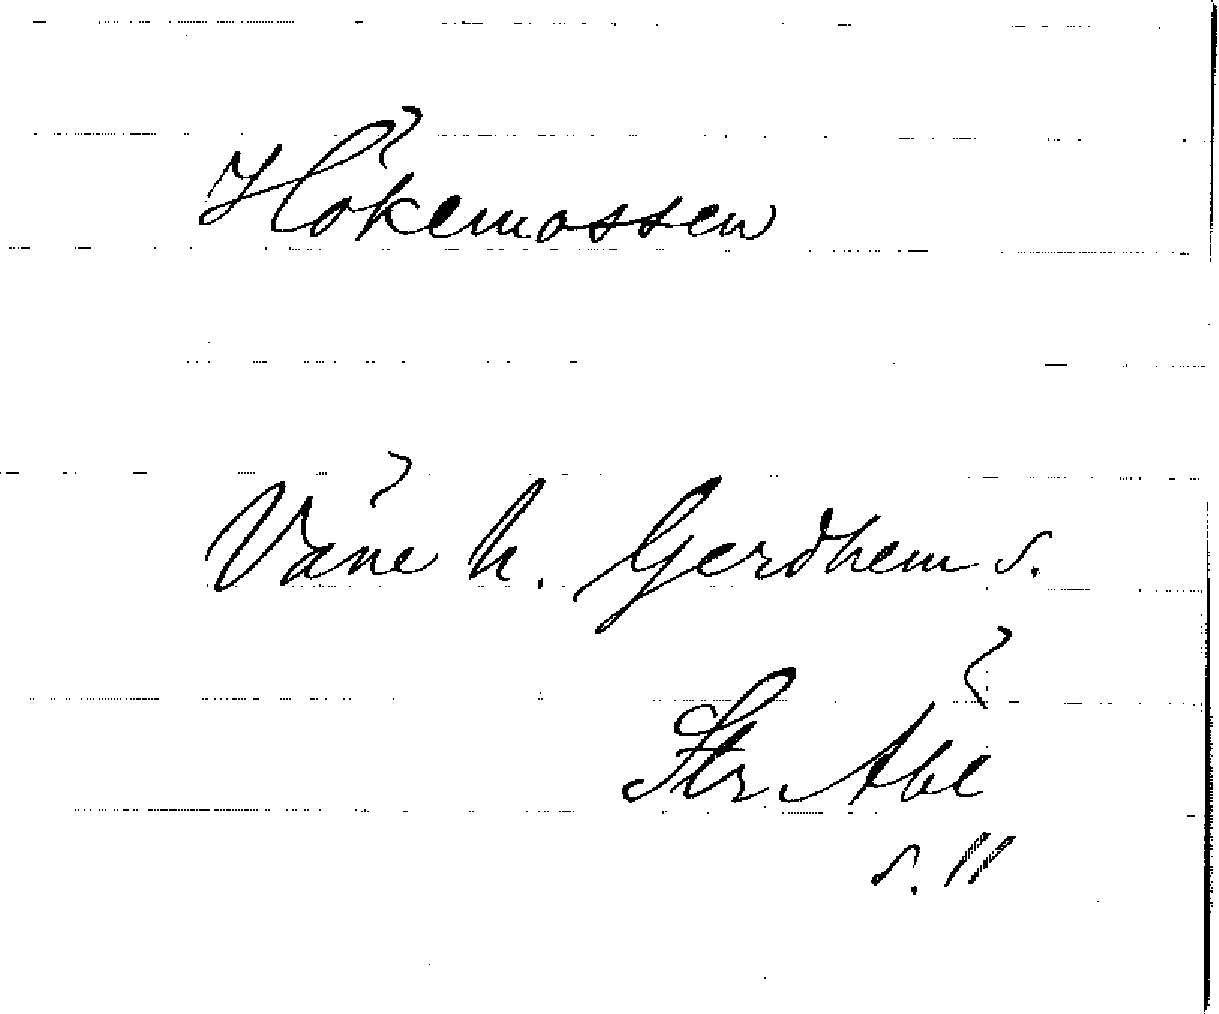 Hökemossen
Väne h. Gerdhem s.
Str. Abl
s. 11